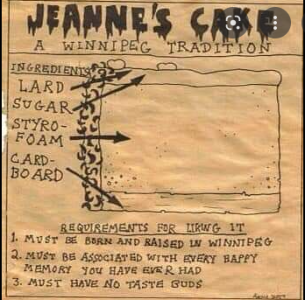 JEANNE'S CAKE
A WINNIPEG TRADITION
INGREDIENTS
LARD
SUGAR
STYRO-
FOAM
CARD-
BOARD
REQUIREMENTS FOR LIKING IT
1. MUST BE BORN AND RAISED IN WINNIPEG
2. MUST BE ASSOCIATED WITH EVERY HAPPY
MEMORY YOU HAVE EVER HAD
3. MUST HAVE NO TASTE BUDS